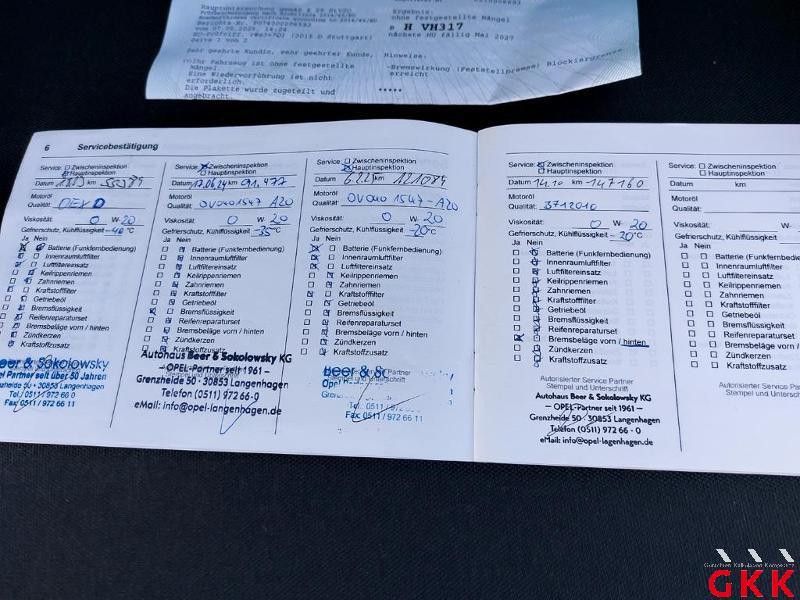 Hauptuntersuchung gemäß § 29 StVZO
Ergebnis:
ohne festgestellte Mängel
H VH317
nächste HU fällig Mai 2027
Sehr geehrte Kundin, sehr geehrter Kunde,
Hinweise:
Ihr Fahrzeug ist ohne festgestellte
Mängel.
Eine Wiedervorführung ist nicht
erforderlich.
Die Plakette wurde zugeteilt und
angebracht.
-Bremswirkung (Feststellbremse) Blockiergrenze
erreicht
*****
6 Servicebestätigung
Service: Zwischeninspektion
Hauptinspektion
Datum km
Motoröl
Qualität:
Viskosität: 0 W- 20
Gefrierschutz, Kühlflüssigkeit -40°C
Ja Nein
Batterie (Funkfernbedienung)
Innenraumluftfilter
Luftfiltereinsatz
Keilrippenriemen
Zahnriemen
Kraftstofffilter
Getriebeöl
Bremsflüssigkeit
Reifenreparaturset
Bremsbeläge vorn / hinten
Zündkerzen
Kraftstoffzusatz
Beer & Sokolowsky
Partner seit über 50 Jahren
Grenzheide 50 · 30853 Langenhagen
Tel (0511) 972 66 0
Fax (0511) 972 66 11
Service: Zwischeninspektion
Hauptinspektion
Datum 17.06.24 km 91.477
Motoröl
Qualität: OVO401547 A20
Viskosität: 0 W- 20
Gefrierschutz, Kühlflüssigkeit -35°C
Ja Nein
Batterie (Funkfernbedienung)
Innenraumluftfilter
Luftfiltereinsatz
Keilrippenriemen
Zahnriemen
Kraftstofffilter
Getriebeöl
Bremsflüssigkeit
Reifenreparaturset
Bremsbeläge vorn / hinten
Zündkerzen
Kraftstoffzusatz
Autohaus Beer & Sokolowsky KG
– OPEL-Partner seit 1961 –
Grenzheide 50 · 30853 Langenhagen
Telefon (0511) 972 66 - 0
eMail: info@opel-langenhagen.de
Service: Zwischeninspektion
Hauptinspektion
Datum 6.2.25 km 121084
Motoröl
Qualität: OVO401547-A20
Viskosität: 0 W- 20
Gefrierschutz, Kühlflüssigkeit -20°C
Ja Nein
Batterie (Funkfernbedienung)
Innenraumluftfilter
Luftfiltereinsatz
Keilrippenriemen
Zahnriemen
Kraftstofffilter
Getriebeöl
Bremsflüssigkeit
Reifenreparaturset
Bremsbeläge vorn / hinten
Zündkerzen
Kraftstoffzusatz
Beer & S
Tel. 0511/
Fax 0511 / 972 66 11
Service: Zwischeninspektion
Hauptinspektion
Datum 14.10 km 147160
Motoröl
Qualität: 3712010
Viskosität: 0 W- 20
Gefrierschutz, Kühlflüssigkeit -20°C
Ja Nein
Batterie (Funkfernbedienung)
Innenraumluftfilter
Luftfiltereinsatz
Keilrippenriemen
Zahnriemen
Kraftstofffilter
Getriebeöl
Bremsflüssigkeit
Reifenreparaturset
Bremsbeläge vorn / hinten
Zündkerzen
Kraftstoffzusatz
Autorisierter Service Partner
Stempel und Unterschrift
Autohaus Beer & Sokolowsky KG
– OPEL-Partner seit 1961 –
Grenzheide 50 · 30853 Langenhagen
Telefon (0511) 972 66 - 0
eMail: info@opel-lagenhagen.de
Service: Zwischeninspektion
Hauptinspektion
Datum km
Motoröl
Qualität:
Viskosität: W-
Gefrierschutz, Kühlflüssigkeit
Ja Nein
Batterie (Funkfernbedienung)
Innenraumluftfilter
Luftfiltereinsatz
Keilrippenriemen
Zahnriemen
Kraftstofffilter
Getriebeöl
Bremsflüssigkeit
Reifenreparaturset
Bremsbeläge vorn / hinten
Zündkerzen
Kraftstoffzusatz
Autorisierter Service Partner
Stempel und Unterschrift
GKK